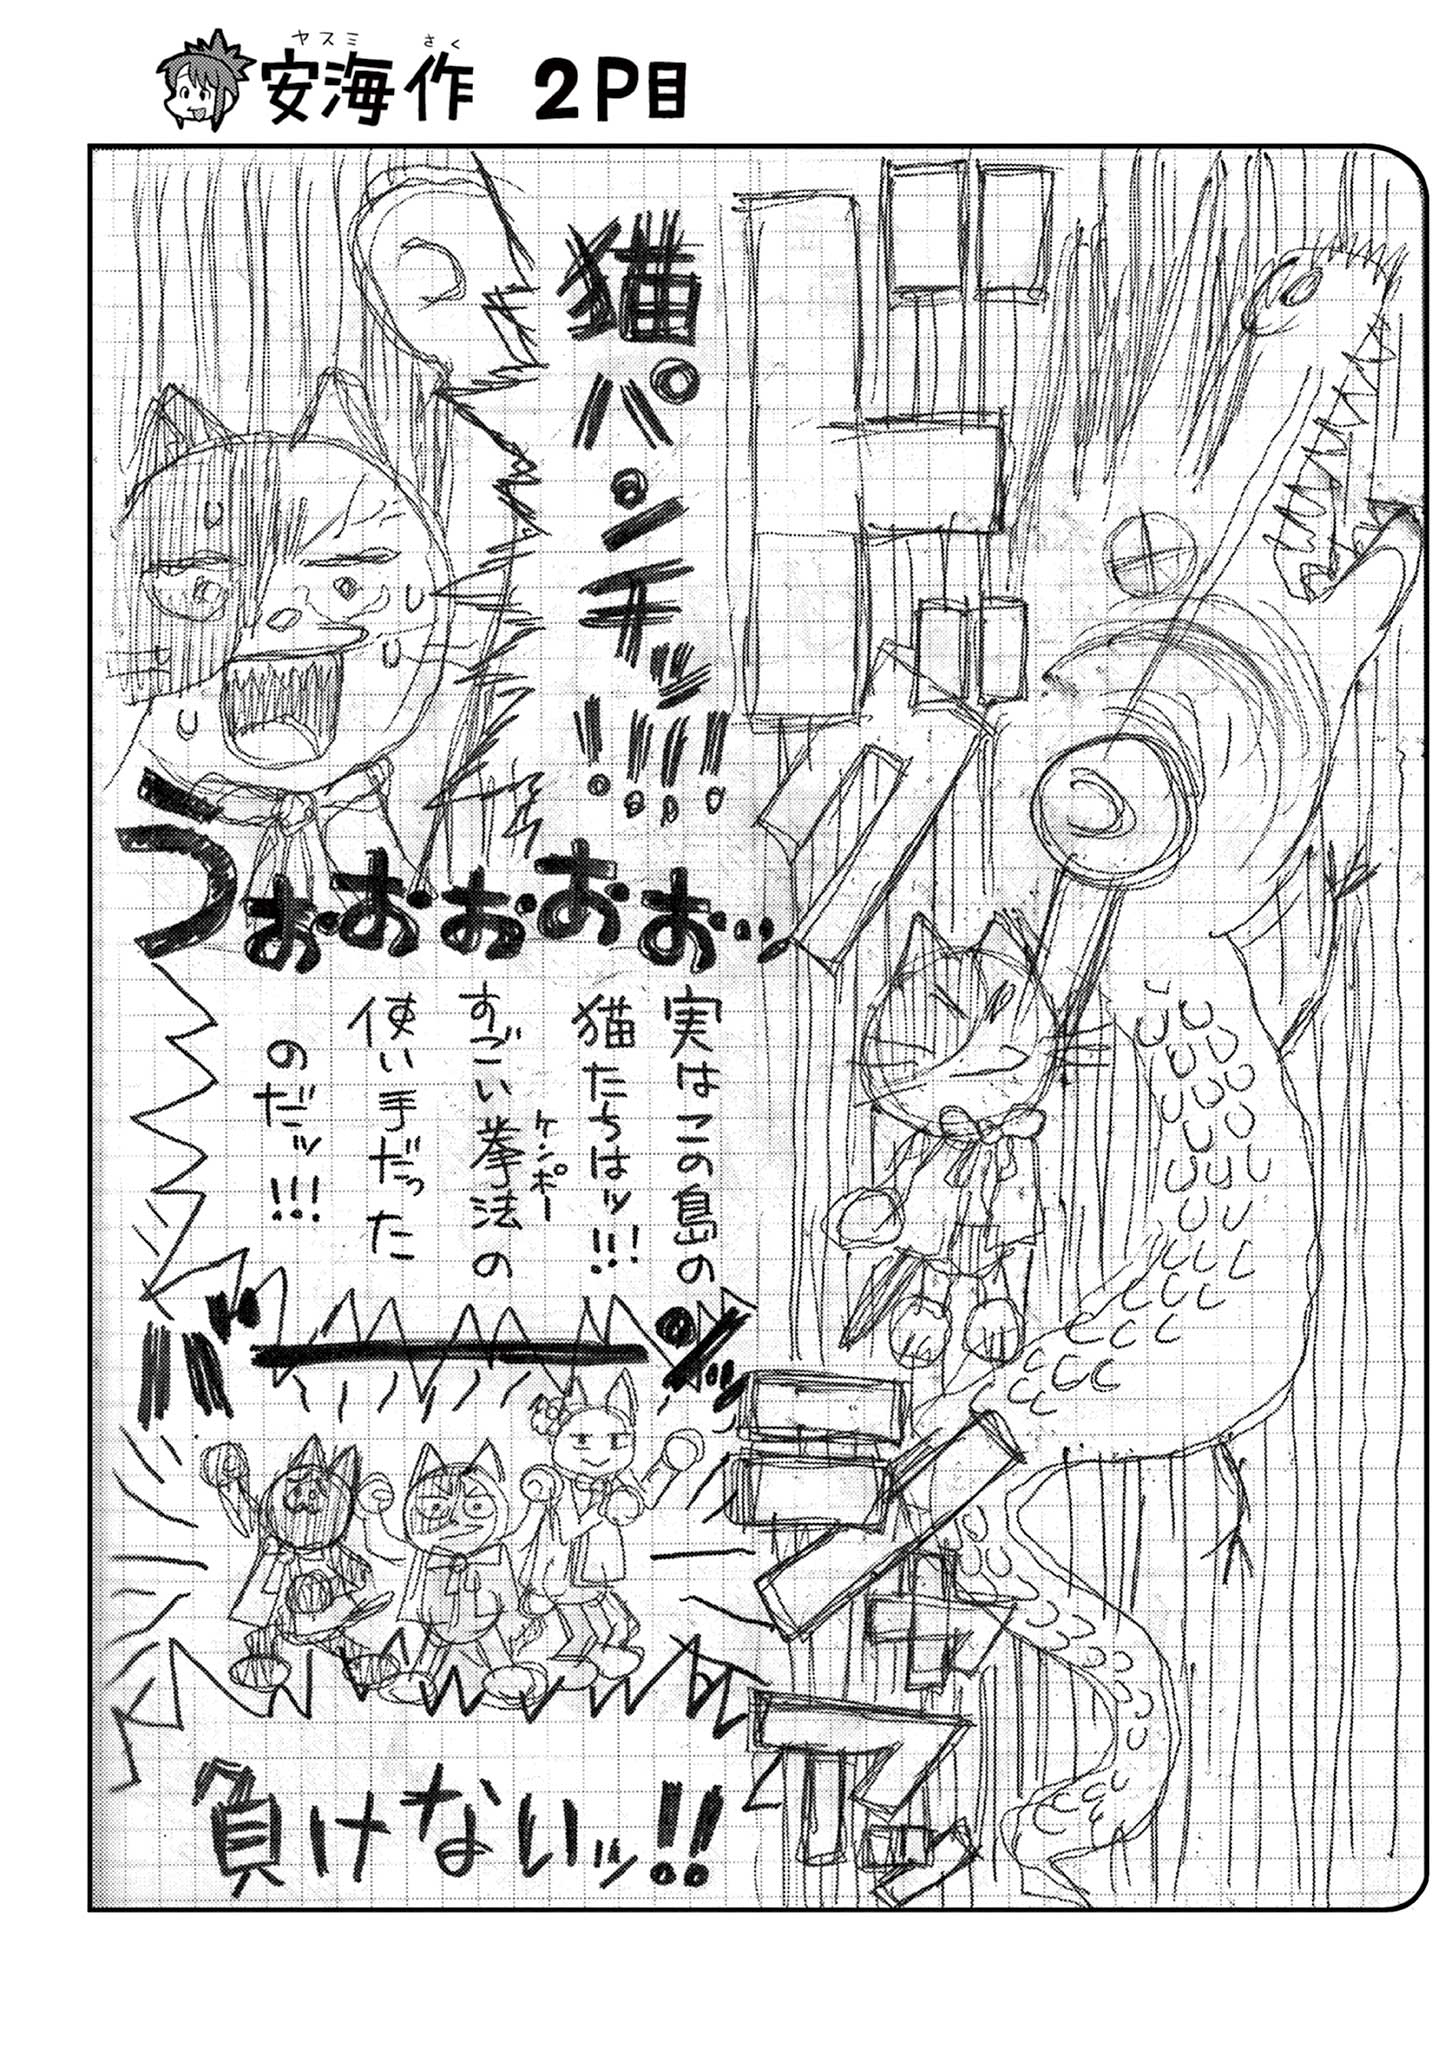 ヤスミ さく
安海作 2P目
猫パンチッ!!!!
うぉおおおお…
実はこの島の
猫たちはッ!!!
すごい拳法の
ケンポー
使い手だった
のだッ!!!
バーン
負けないッ!!